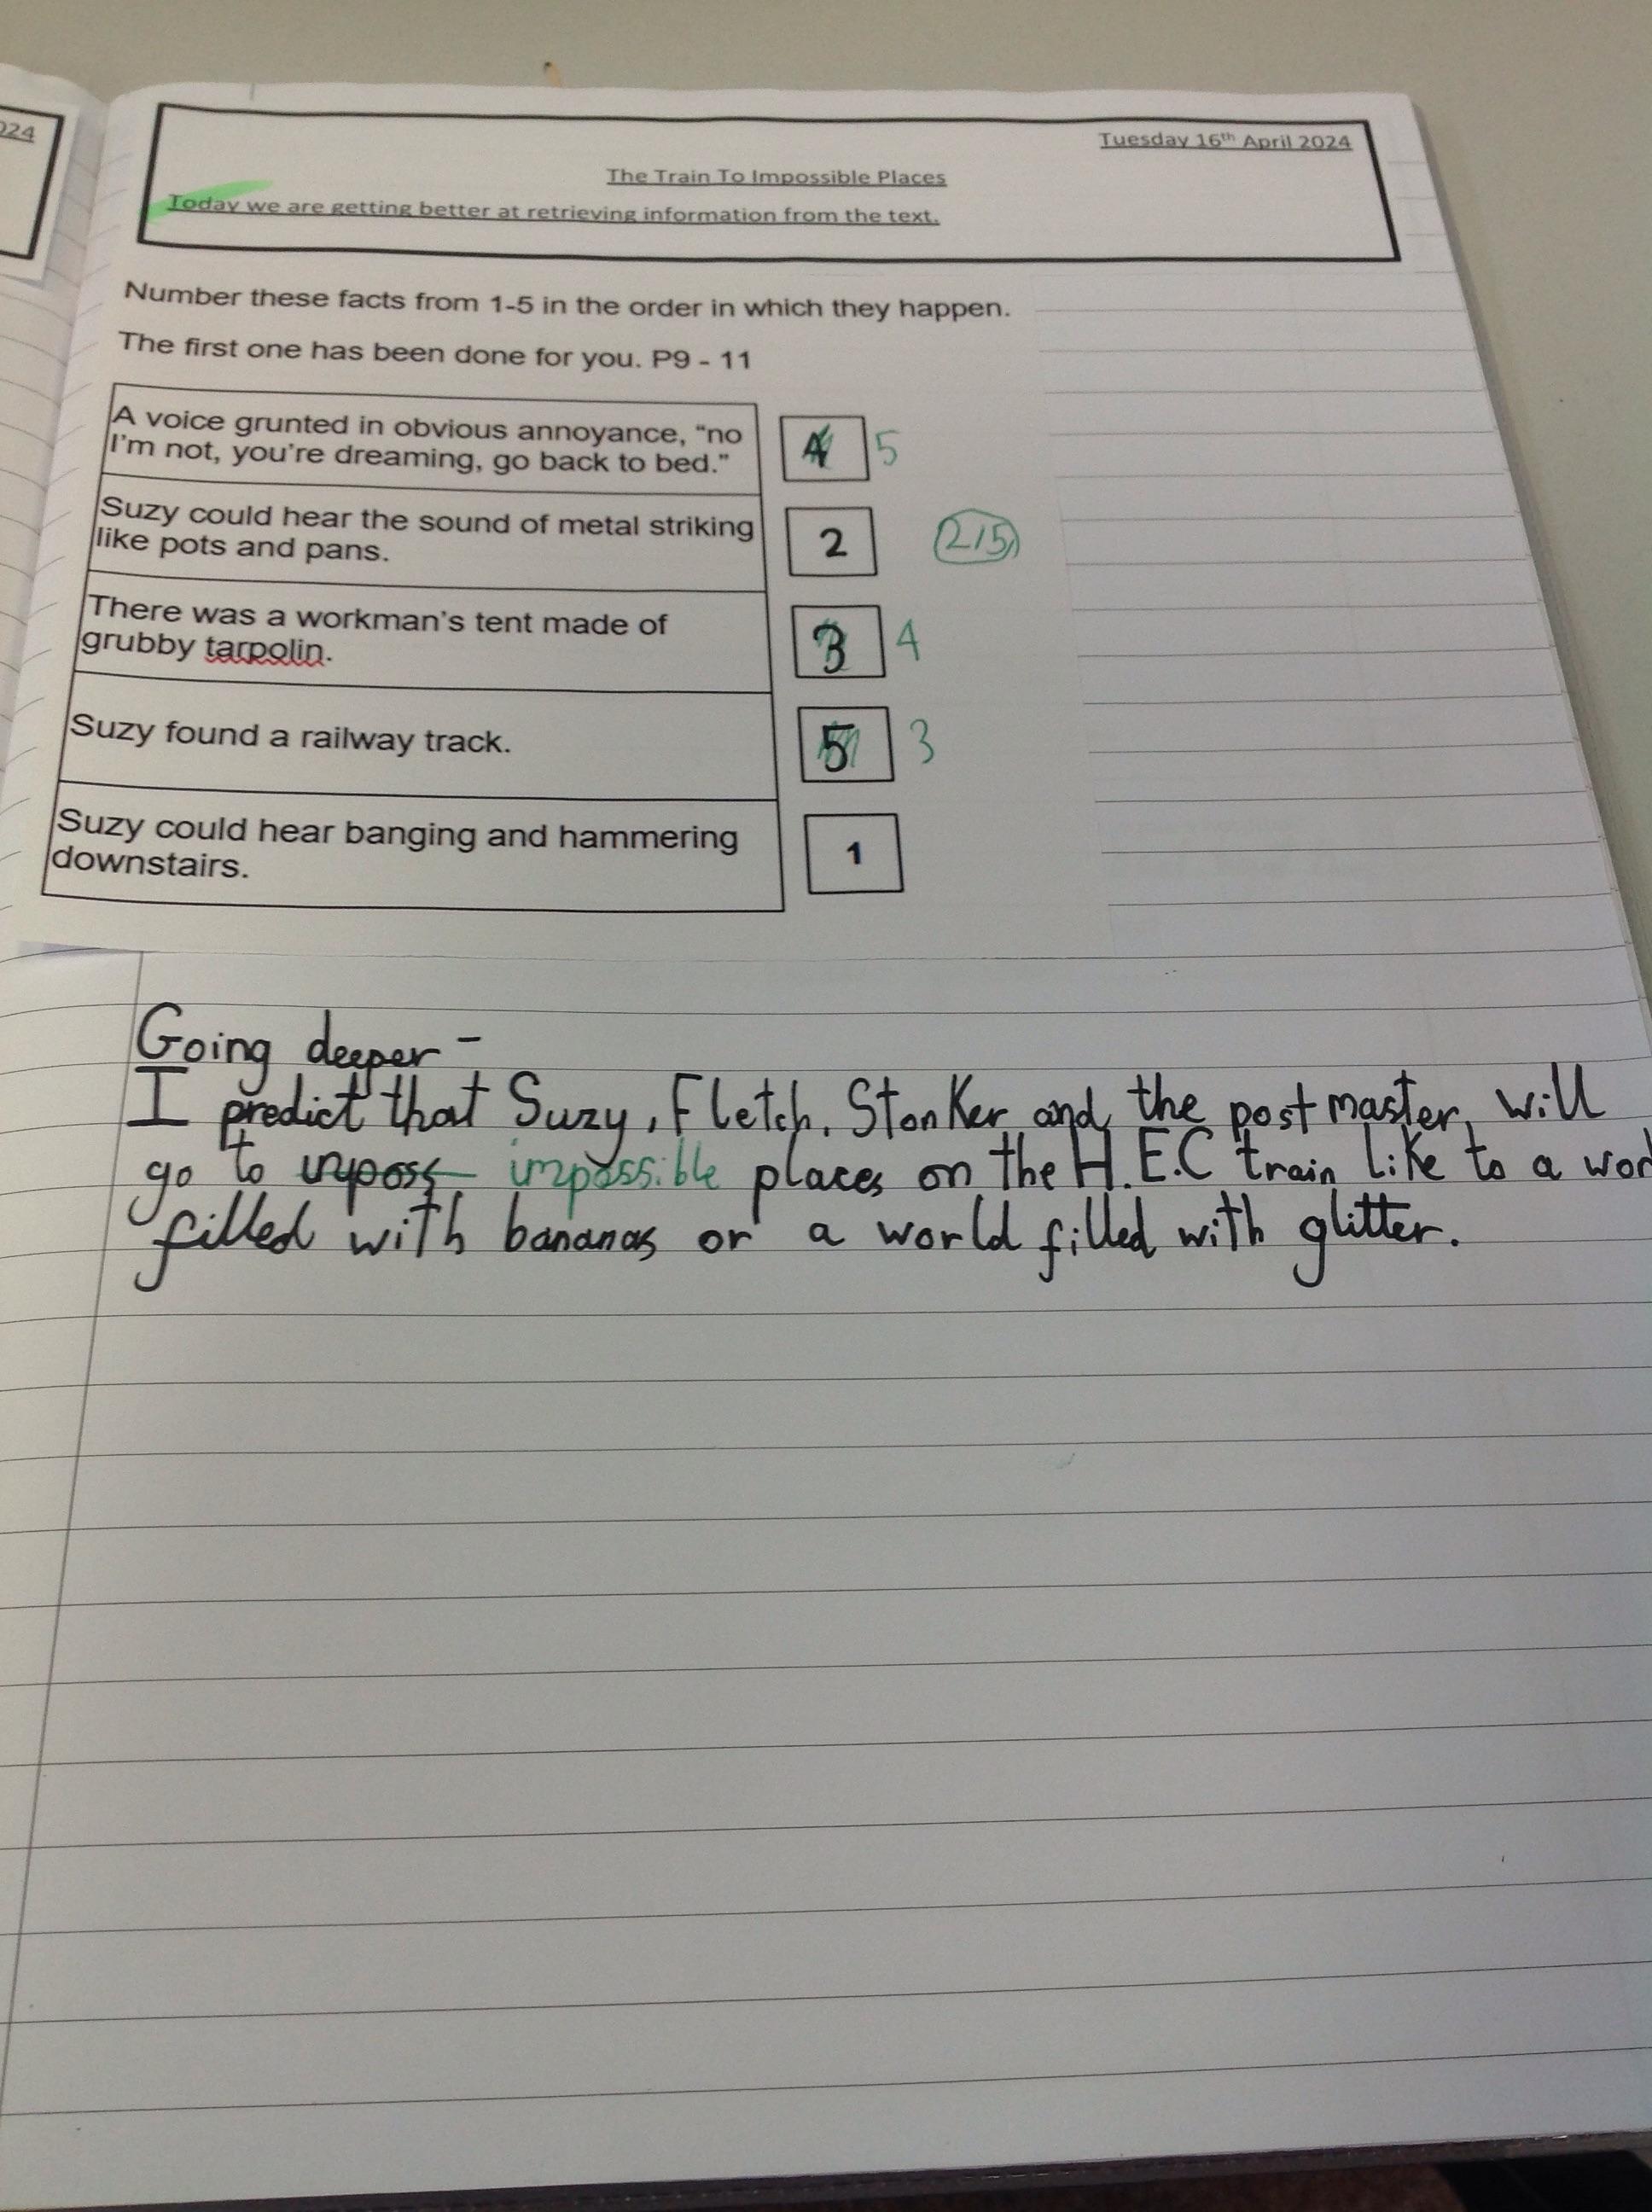 024
Tuesday 16th April 2024
The Train To Impossible Places
Today we are getting better at retrieving information from the text.
Number these facts from 1-5 in the order in which they happen.
The first one has been done for you. P9 - 11
A voice grunted in obvious annoyance, “no
I’m not, you’re dreaming, go back to bed.”
4 5
Suzy could hear the sound of metal striking
like pots and pans.
2
2/5
There was a workman’s tent made of
grubby tarpolin.
3 4
Suzy found a railway track.
5 3
Suzy could hear banging and hammering
downstairs.
1
Going deeper -
I predict that Suzy, Fletch, Stonker and the post master, will
go to imposs impossible places on the H.E.C train like to a wor
filled with bananas or a world filled with glitter.